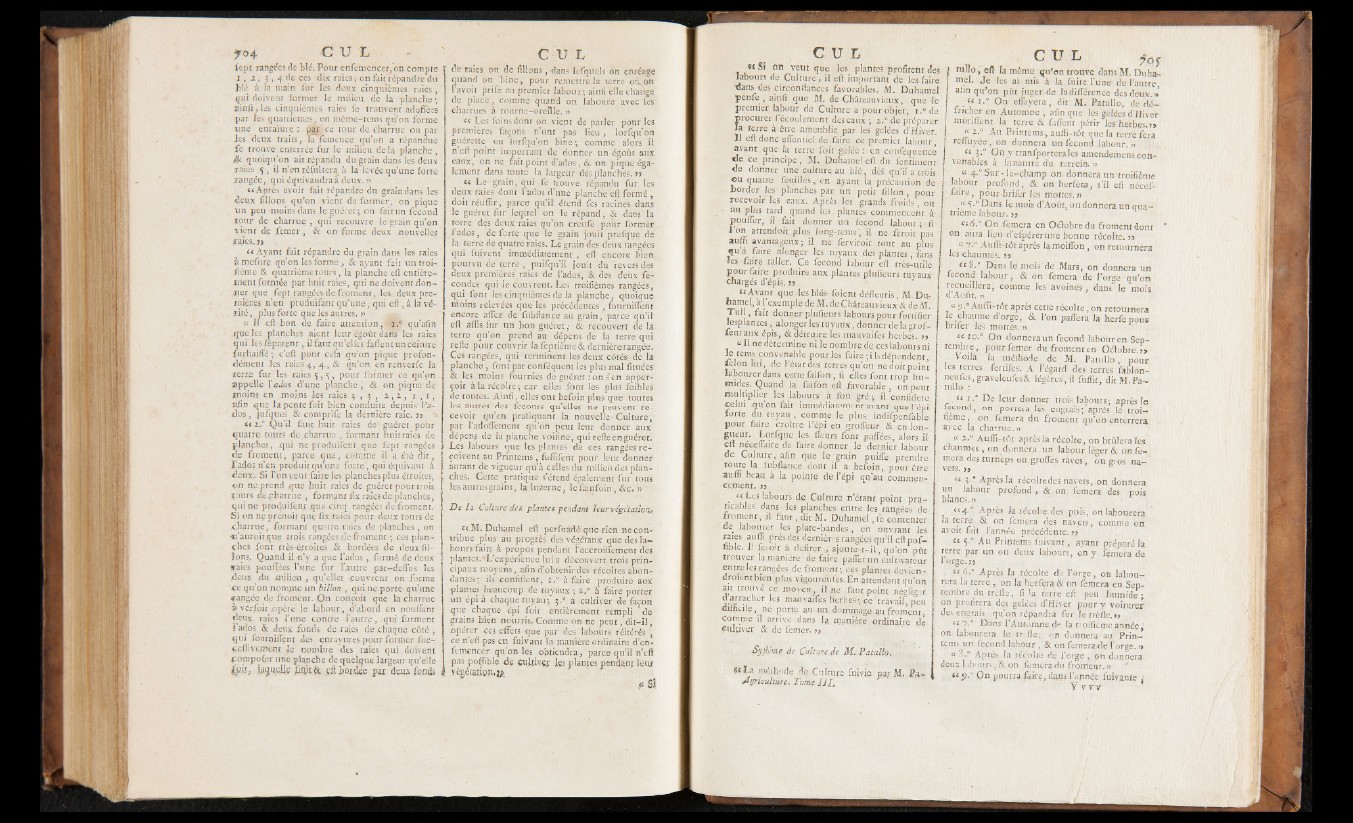 704 CUL
sept rangées de blé. Pour ensemencer, on compte
1, 2, 3, 4 de ces dix raies; on fait répandre du
blé à la main sur les deux cinquièmes raies,
qui doivent former le milieu de la planche;
ainsi, les cinquièmes raies se trouvent adossées
par les quatrièmes, en même-tems qu'on forme
une enraiure: par ce tour de charrue ou par
les deux traits, la semence qu'on a répandue
se trouve enterrée sur le milieu de la planche,
& quoiqu'on ait répandu du grain dans les deux
raies 5, il n'en résultera, à la levée qu'une forte
rangée, qui équivaudra à deux. »
« Après avoir fait répandre du grain dans les
deux sillons qu'on vient de former, on pique
un peu moins dans le guéret; on fait un second
tour de charrue, qui recouvre le grain qu'on
vient de semer, & on forme deux nouvelles
raies. »
« Ayant fait répandre du grain dans les raies
à mesure qu'on les forme, & ayant fait un troi-
sième & quatrième tours, la planche est entière-
ment formée par huit raies, qui ne doivent don-
ner que sept rangées de froment, les deux pre-
mières n'en produisant qu'une, qui est, à la vé-
rité, plus forte que les autres. »
« Il est bon de faire attention, 1.° qu'afin
que les planches aient leur égoût dans les raies
qui les séparent, il faut qu'elles fassent un ceintre
surbaissé; c'est pour cela qu'on pique profon-
dément les raies 4, 4, & qu'on en renverse la
terre sur les raies 5, 5, pour former ce qu'on
appelle l'ados d'une planche, & on pique de
moins en moins les raies 3, 3, 2, 2, 1, 1,
afin que la pente soit bien conduite depuis l'a-
dos, jusques & compris la dernière raie. »
« 2.° Qu'il faut huit raies de guéret pour
quatre tours de charrue, formant huit raies de
planches, qui ne produisent que sept rangées
de froment, parce que, comme il a été dit,
l'ados n'en produit qu'une forte, qui équivaut à
deux. Si l'on veut faire les planches plus étroites,
on ne prend que huit raies de guéret pour trois
tours de charrue, formant six raies de planches,
qui ne produisent que cinq rangées de froment.
Si on ne prenoit que six raies pour deux tours de
charrue, formant quatre raies de planches, on
n'auroit que trois rangées de froment; ces plan-
ches sont très-étroites & bordées de deux sil-
lons. Quand il n'y a que l'ados, formé de deux
raies poussées l'une sur l'autre par-dessus les
deux du milieu, qu'elles couvrent on forme
ce qu'on nomme un billon, qui ne porte qu'une
rangée de froment. On conçoit que la charrue
à versoir opère le labour, d'abord en poussant
deux raies l'une contre l'autre, qui forment
l'ados & deux fonds de raies de chaque côté,
qui fournissent les enrayures pour former suc-
cessivement le nombre des raies qui doivent
composer une planche de quelque largeur qu'elle
soit, laquelle finit & est bordée par deux fonds
CUL
de raies ou de sillons, dans lesquels on enréage
quand on bine, pour remettre la terre où on
l'avoit prise au premier labour; ainsi elle change
de place, comme quand on laboure avec les
charrues à tourne-oreille. »
« Les soins dont on vient de parler pour les
premières façons n'ont pas lieu, lorsqu'on
guérette ou lorsqu'on bine; comme alors il
n'est point important de donner un égoût aux
eaux, on ne fait point d'ados, & on pique éga-
lement dans toute la largeur des planches. »
« Le grain, qui se trouve répandu sur les
deux raies dont l'ados d'une planche est formé,
doit réussir, parce qu'il étend ses racines dans
le guéret sur lequel on le répand, & dans la
terre des deux raies qu'on creuse pour former
l'ados, de sorte que le grain jouit presque de
la terre de quatre raies. Le grain des deux rangées
qui suivent immédiatement, est encore bien
pourvu de terre, puisqu'il jouit du revers des
deux premières raies de l'ados, & des deux se-
condes qui le couvrent. Les troisièmes rangées,
qui sont les cinquièmes de la planche, quoique
moins relevées que les précédentes, fournissent
encore assez de substance au grain, parce qu'il
est assis sur un bon guéret, & recouvert de la
terre qu'on prend au dépens de la terre qui
reste pour couvrir la septième & dernière rangée.
Ces rangées, qui terminent les deux côtés de la
planche, sont par conséquent les plus mal situées
& les moins fournies de guéret: on s'en apper-
çoit à la récolte; car elles sont les plus foibles
de toutes. Ainsi, elles ont besoin plus que toutes
les autres des secours qu'elles ne peuvent re-
cevoir qu'en pratiquant la nouvelle Culture,
par l'adossement qu'on peut leur donner aux
dépens de la planche voisine, qui reste en guéret.
Les labours que les plantes de ces rangées re-
çoivent au Printems, suffisent pour leur donner
autant de vigueur qu'à celles du milieu des plan-
ches. Cette pratique s'étend également sur tous
les autres grains, la luzerne, le sainfoin, &c. »
De la Culture des plantes pendant leur végétation.
« M. Duhamel est persuadé que rien ne con-
tribue plus au progrès des végétaux que des la-
bours faits à propos pendant l'accroissement des
plantes. « L'expérience lui a découvert trois prin-
cipaux moyens, afin d'obtenir des récoltes abon-
dantes; ils consistent, 1.° à faire produire aux
plantes beaucoup de tuyaux; 2.° à faire porter
un épi à chaque tuyau; 3.° à cultiver de façon
que chaque épi soit entièrement rempli de
grains bien nourris. Comme on ne peut, dit-il,
opérer ces effets que par des labours réitérés,
ce n'est pas en suivant la manière ordinaire d'en-
semencer qu'on les obtiendra, parce qu'il n'est
pas possible de cultiver les plantes pendant leur
végétation. »
« Si
CUL
« Si on veut que les plantes profitent des
labours de Culture, il est important de les faire
dans des circonstances favorables. M. Duhamel
pense, ainsi que M. de Châteauvieux, que le
premier labour de Culture a pour objet, 1.° de
procurer l'écoulement des eaux; 2.° de préparer
la terre à être ameublie par les gelées d'Hiver.
Il est donc essentiel de faire ce premier labour,
avant que la terre soit gelée: en conséquence
de ce principe, M. Duhamel est du sentiment
de donner une culture au blé, dès qu'il a trois
ou quatre feuilles, en ayant la précaution de
border les planches par un petit sillon, pour
recevoir les eaux. Après les grands froids, ou
au plus tard quand les plantes commencent à
pousser, il faut donner un second labour; si
l'on attendoit plus long-tems, il ne seroit pas
aussi avantageux; il ne serviroit tout au plus
qu'à faire alonger les tuyaux des plantes, sans
les faire taller. Ce second labour est très-utile
pour faire produire aux plantes plusieurs tuyaux
chargés d'épis. »
« Avant que les blés soient défleuris, M. Du-
hamel, à l'exemple de M. de Châteauvieux & de M.
Tull, fait donner plusieurs labours pour fortifier
les plantes, alonger les tuyaux, donner de la gros-
seur aux épis, & détruire les mauvaises herbes. »
« Il ne détermine ni le nombre de ces labours ni
le tems convenable pour les faire; ils dépendent,
selon lui, de l'état des terres qu'on ne doit point
labourer dans cette saison, si elles sont trop hu-
mides. Quand la saison est favorable, on peut
multiplier les labours à son gré; il considère
celui qu'on fait immédiatement avant que l'épi
sorte du tuyau, comme le plus indispensable
pour faire croître l'épi en grosseur & en lon-
gueur. Lorsque les fleurs sont passées, alors il
est nécessaire de faire donner le dernier labour
de Culture, afin que le grain puisse prendre
toute la substance dont il a besoin, pour être
aussi beau à la pointe de l'épi qu'au commen-
cement. »
« Les labours de Culture n'étant point pra-
ticables dans les planches entre les rangées de
froment, il faut, dit M. Duhamel, se contenter
de labourer les plate-bandes, en ouvrant les
raies aussi près des dernières rangées qu'il est pos-
sible. Il seroit à desirer, ajoute-t-il, qu'on pût
trouver la manière de faire passer un cultivateur
entre les rangées de froment; ces plantes devien-
droient bien plus vigoureuses. En attendant qu'on
ait trouvé ce moyen, il ne faut point négliger
d'arracher les mauvaises herbes; ce travail, peu
difficile, ne porte aucun dommage au froment,
comme il arrive dans la manière ordinaire de
cultiver & de semer. »
Système de Culture de M. Patullo.
« La méthode de Culture suivie par M. Pa-
Agriculture. Tome III.
CUL 705
tullo, est la même qu'on trouve dans M. Duha-
mel. Je les ai mis à la suite l'une de l'autre,
afin qu'on pût juger de la différence des deux. »
« 1.° On essayera, dit M. Patullo, de dé-
fricher en Automne, afin que les gelées d'Hiver
mûrissent la terre & fassent périr les herbes. »
« 2.° Au Printems, aussi-tôt que la terre sera
ressuyée, on donnera un second labour. »
« 3.° On y transportera les amendemens con-
venables à la nature du terrein. »
« 4.° Sur-le-champ on donnera un troisième
labour profond, & on hersera, s'il est néces-
saire, pour briser les mottes. »
« 5.° Dans le mois d'Août, on donnera un qua-
trième labour. »
« 6.° On semera en Octobre du froment dont
on aura lieu d'espérer une bonne récolte. »
« 7.° Aussi-tôt après la moisson, on retournera
les chaumes. »
« 8.° Dans le mois de Mars, on donnera un
second labour, & on semera de l'orge qu'on
recueillera, comme les avoines, dans le mois
d'Août. »
« 9.° Aussi-tôt après cette récolte, on retournera
le chaume d'orge, & l'on passera la herse pour
briser les mottes. »
« 10.° On donnera un second labour en Sep-
tembre, pour semer du froment en Octobre. »
Voilà la méthode de M. Patullo, pour
les terres fertiles. A l'égard des terres sablon-
neuses, graveleuses & légères, il suffit, dit M. Pa-
tullo :
« 1.° De leur donner trois labours; après le
second, on portera les engrais; après le troi-
sième, on semera du froment qu'on enterrera
avec la charrue. »
« 2.° Aussi-tôt après la récolte, on brûlera les
chaumes, on donnera un labour léger & on se-
mera des turneps ou grosses raves, ou gros na-
vets. »
« 3.° Après la récolte des navets, on donnera
un labour profond, & on semera des pois
blancs. »
« 4.° Après la récolte des pois, on labourera
la terre & on semera des navets, comme on
avoit fait l'année précédente. »
« 5.° Au Printems suivant, ayant préparé la
terre par un ou deux labours, on y semera de
l'orge. »
« 6.° Après la récolte de l'orge, on labou-
rera la terre, on la hersera & on semera en Sep-
tembre du trèfle, si la terre est peu humide;
on profitera des gelées d'Hiver pour y voiturer
des engrais, qu'on répandra sur le trèfle. »
« 7.° Dans l'Automne de la troisième année,
on labourera le trèfle; on donnera au Prin-
tems un second labour, & on semera de l'orge. »
« 8.° Après la récolte de l'orge, on donnera
deux labours, & on semera du froment. »
« 9.° On pourra faire, dans l'année suivante,
V v v v